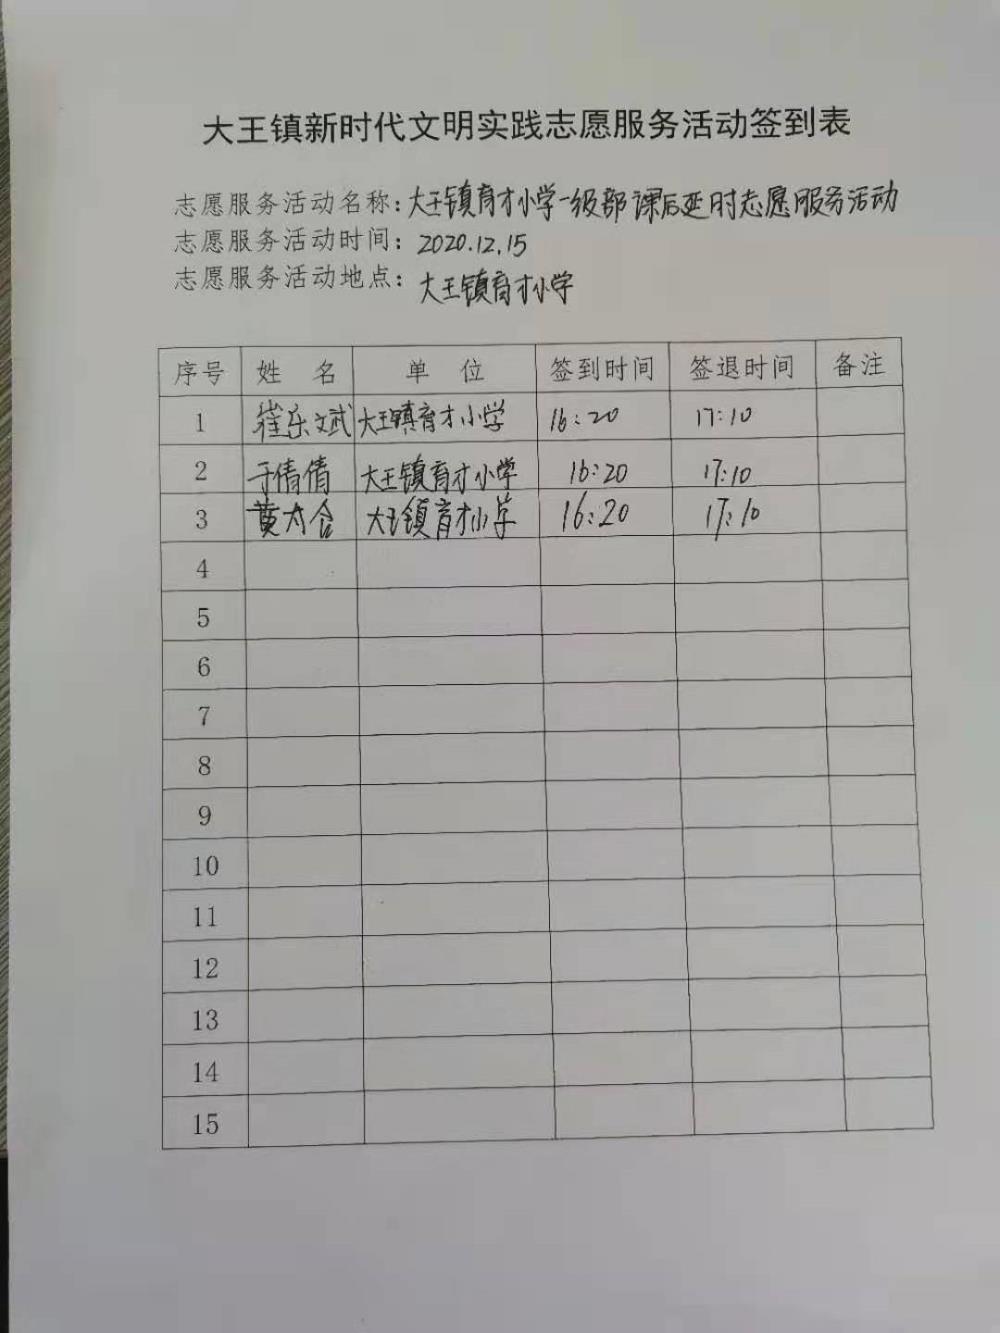 大王镇新时代文明实践志愿服务活动签到表
志愿服务活动名称：大王镇育才小学一级部课后延时志愿服务活动
志愿服务活动时间：2020.12.15
志愿服务活动地点：大王镇育才小学
序号 姓 名 单 位 签到时间 签退时间 备注
1 崔乐斌 大王镇育才小学 16:20 17:10
2 于倩倩 大王镇育才小学 16:20 17:10
3 黄 大王镇育才小学 16:20 17:10
4
5
6
7
8
9
10
11
12
13
14
15